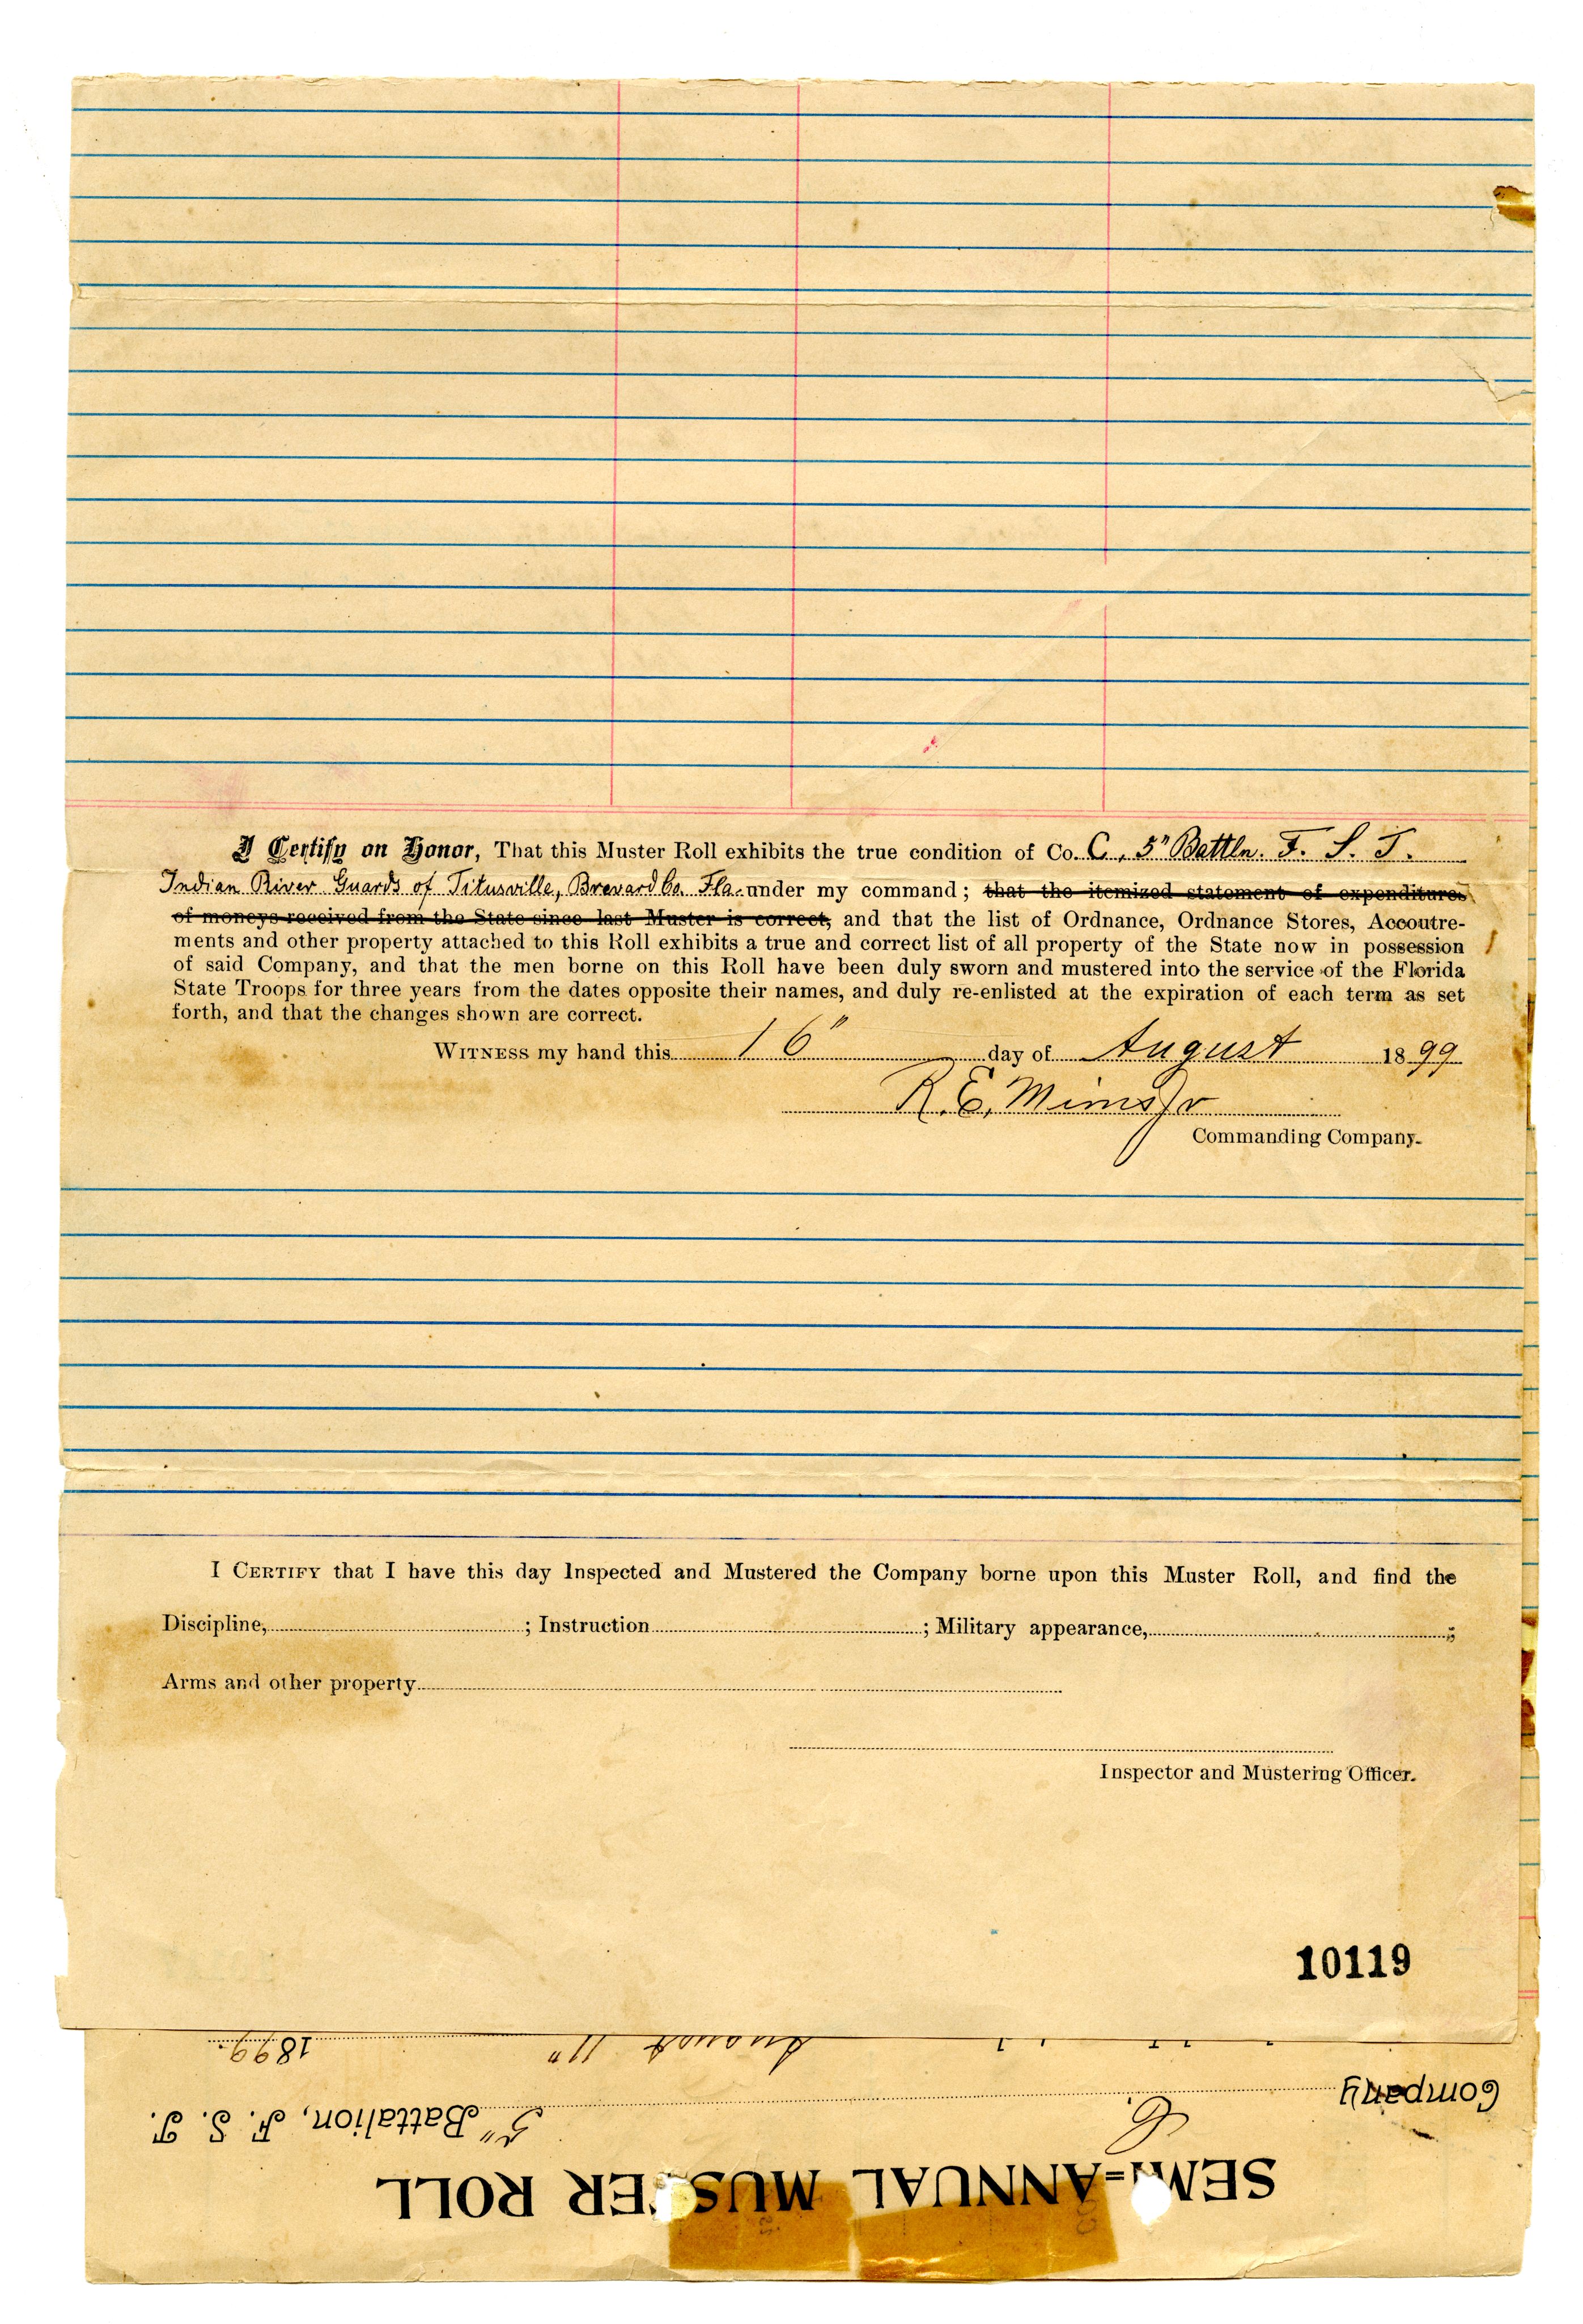 I Certify on Honor, That this Muster Roll exhibits the true condition of Co. C, 5" Battln. F. S. T.
Indian River Guards of Titusville, Brevard Co. Fla. under my command; that the itemized statement of expenditures
of moneys received from the State since last Muster is correct, and that the list of Ordnance, Ordnance Stores, Accoutre-
ments and other property attached to this Roll exhibits a true and correct list of all property of the State now in possession
of said Company, and that the men borne on this Roll have been duly sworn and mustered into the service of the Florida
State Troops for three years from the dates opposite their names, and duly re-enlisted at the expiration of each term as set
forth, and that the changes shown are correct.
WITNESS my hand this 16" day of August 1899
R. E. Mims Jr
Commanding Company.
I CERTIFY that I have this day Inspected and Mustered the Company borne upon this Muster Roll, and find the
Discipline, ; Instruction ; Military appearance, ;
Arms and other property
Inspector and Mustering Officer.
10119
SEMI=ANNUAL MUSTER ROLL
Company C. 5" Battalion, F. S. T.
August 11" 1899.